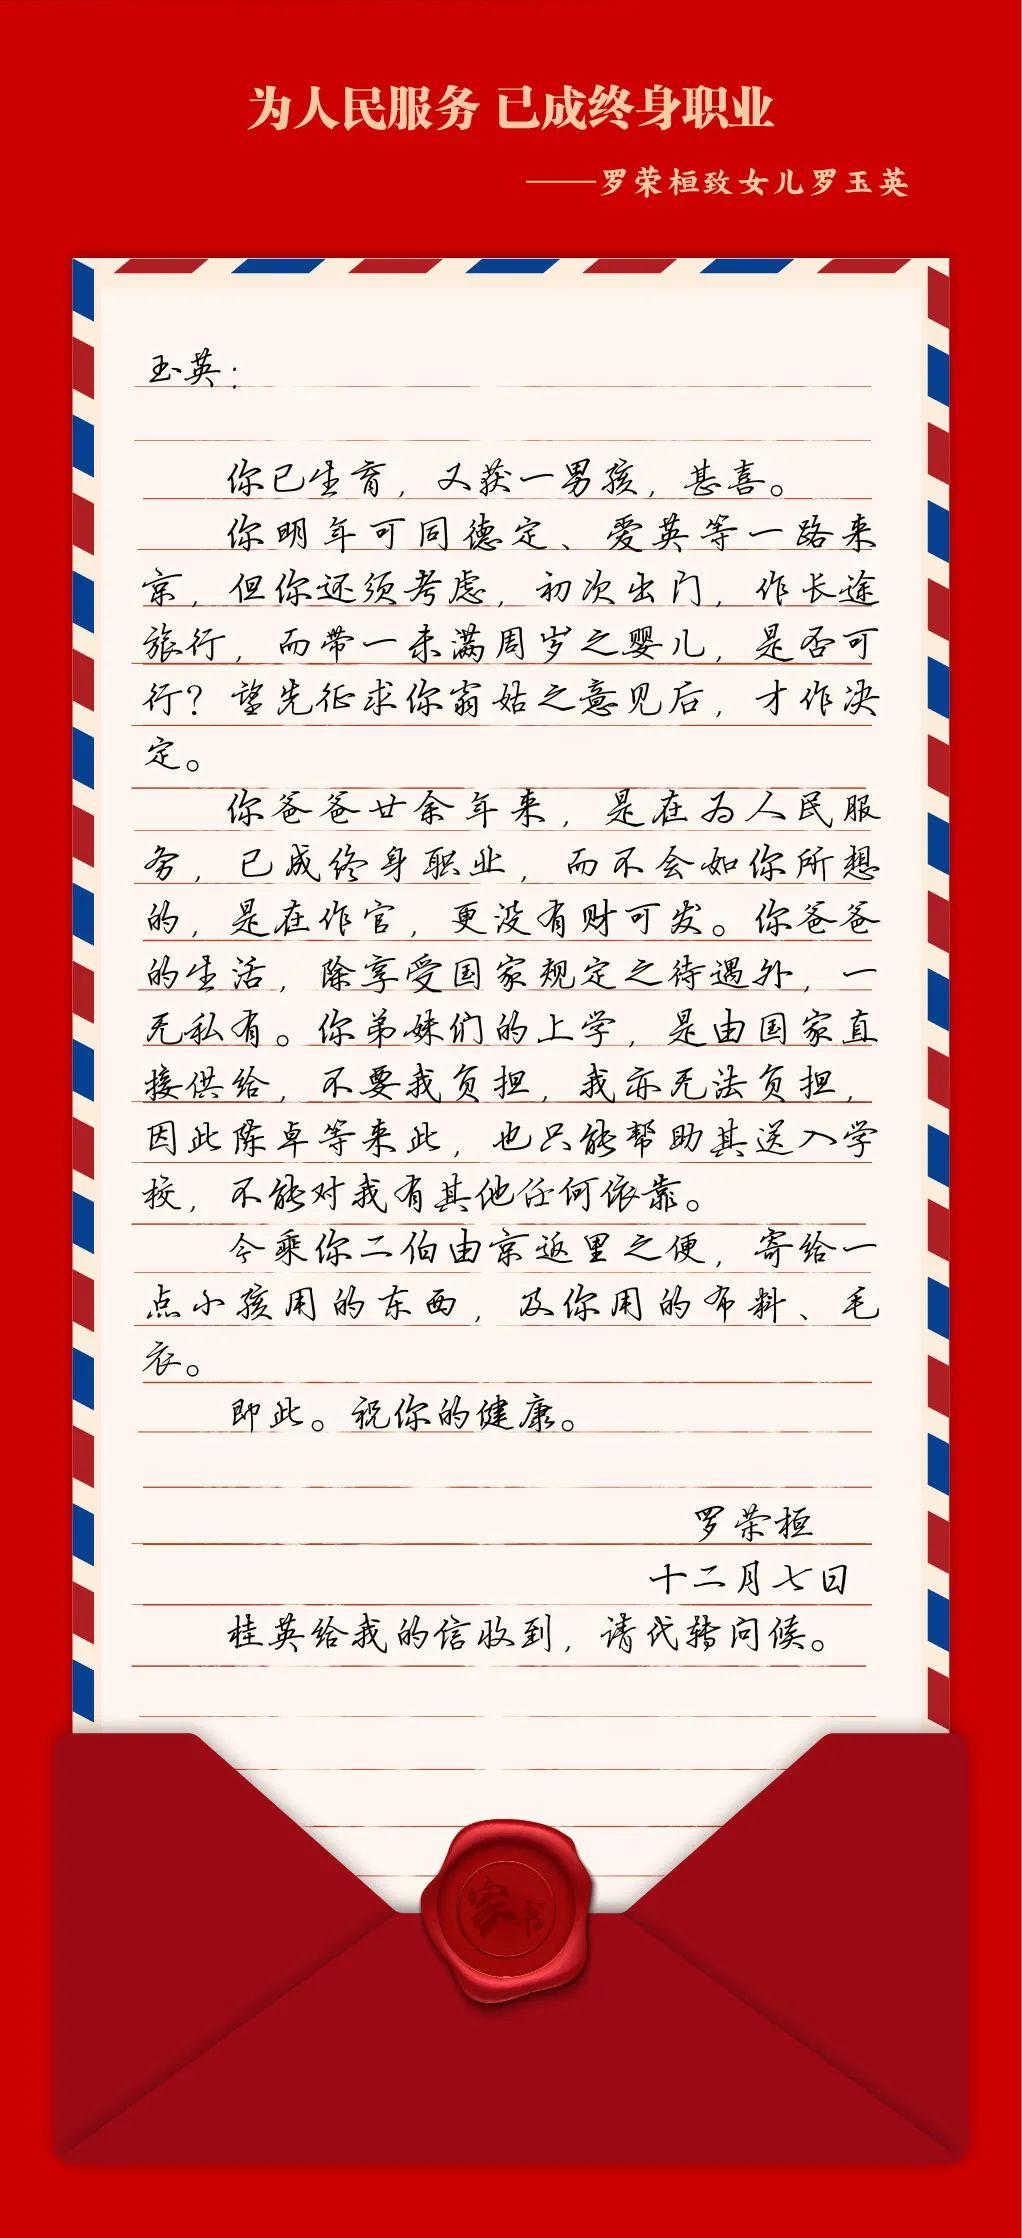 为人民服务 已成终身职业
——罗荣桓致女儿罗玉英
玉英：
你已生育，又获一男孩，甚喜。
你明年可同德定、爱英等一路来
京，但你还须考虑，初次出门，作长途
旅行，而带一未满周岁之婴儿，是否可
行？望先征求你翁姑之意见后，才作决
定。
你爸爸廿余年来，是在为人民服
务，已成终身职业，而不会如你所想
的，是在作官，更没有财可发。你爸爸
的生活，除享受国家规定之待遇外，一
无私有。你弟妹们的上学，是由国家直
接供给，不要我负担，我亦无法负担，
因此陈卓等来此，也只能帮助其送入学
校，不能对我有其他任何依靠。
今乘你二伯由京返里之便，寄给一
点小孩用的东西，及你用的布料、毛
衣。
即此。祝你的健康。
罗荣桓
十二月七日
桂英给我的信收到，请代转问候。
家书